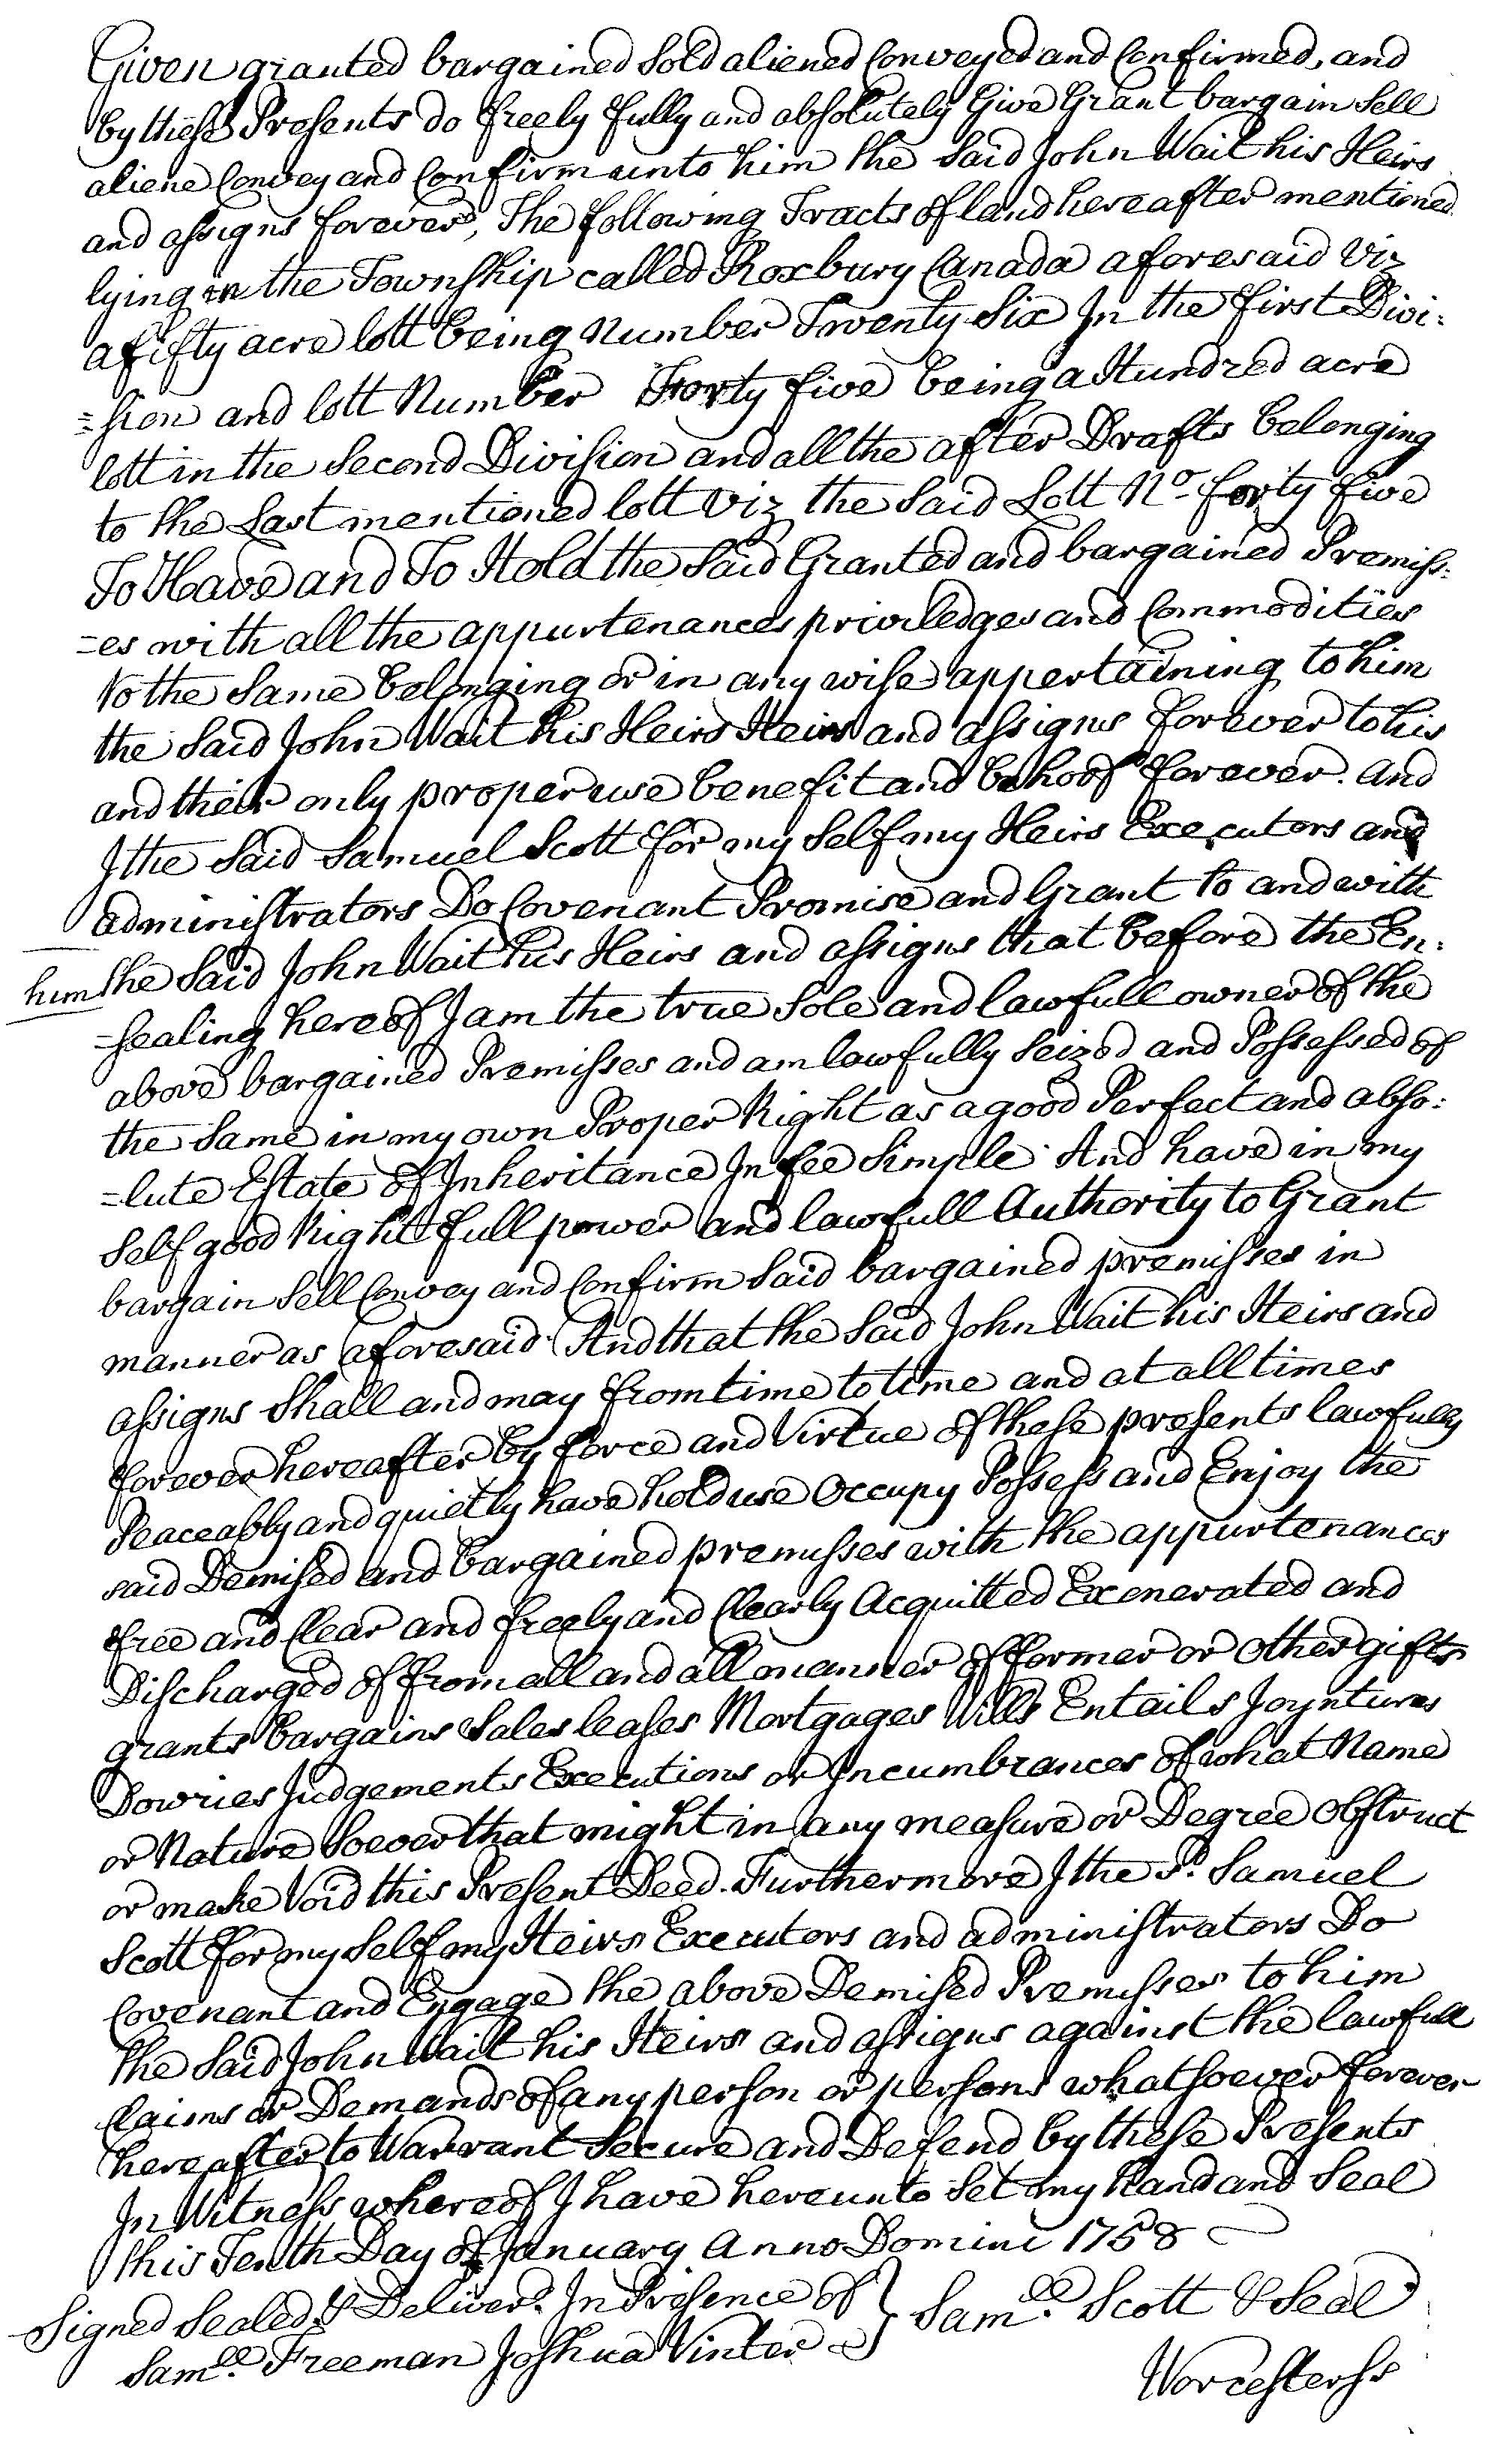 Given granted bargained Sold aliened Conveyed and Confirmed, and
by these Presents do freely fully and absolutely Give Grant bargain Sell
aliene Convey and Confirm unto him the Said John Wait his Heirs
and assigns forever, The following Tracts of land hereafter mentioned
lying in the Township called Roxbury Canada aforesaid Viz
a fifty acre lott being Number Twenty Six In the first Divi-
=sion and lott Number Forty five being a Hundred acre
lott in the Second Division and all the after Drafts belonging
to the Last mentioned lott Viz the Said Lott No. forty five
To Have and To Hold the Said Granted and bargained Premiss-
=es with all the appurtenances priviledges and Commodities
to the Same belonging or in any wise appertaining to him
the Said John Wait his Heirs Heirs and assigns forever to his
and their only proper use benefit and behoof forever. And
I the Said Samuel Scott for my Self my Heirs Executors and
administrators Do Covenant Promise and Grant to and with
him the Said John Wait his Heirs and assigns that before the En-
=sealing hereof I am the true Sole and lawfull owner of the
above bargained Premisses and am lawfully Seized and Possessed of
the Same in my own Proper Right as a good Perfect and abso-
=lute Estate of Inheritance In fee Simple. And have in my
Self good Right full power and lawfull Authority to Grant
bargain Sell Convey and Confirm Said bargained premisses in
manner as aforesaid. And that the Said John Wait his Heirs and
assigns Shall and may from time to time and at all times
forever hereafter by force and Virtue of these presents lawfully
Peaceably and quietly have hold use Occupy Possess and Enjoy the
said Demised and bargained premisses with the appurtenances
free and Clear and freely and Clearly Acquitted Exonerated and
Discharged of from all and all manner of former or other gifts
grants bargains Sales leases Mortgages Wills Entails Joyntures
Dowries Judgements Executions or Incumbrances of what Name
or Nature Soever that might in any measure or Degree Obstruct
or make Void this Present Deed. Furthermore I the Sd. Samuel
Scott for my Self my Heirs Executors and administrators Do
Covenant and Engage the above Demised Premisses to him
the Said John Wait his Heirs and assigns against the lawfull
Claims or Demands of any person or persons whatsoever forever
hereafter to Warrant Secure and Defend by these Presents
In Witness whereof I have hereunto Set my Hand and Seal
this Tenth Day of January Anno Domini 1758
Signed Sealed & Deliverd. In Presence of } Samll. Scott & Seal
Samll. Freeman Joshua Vinter
Worcester ss